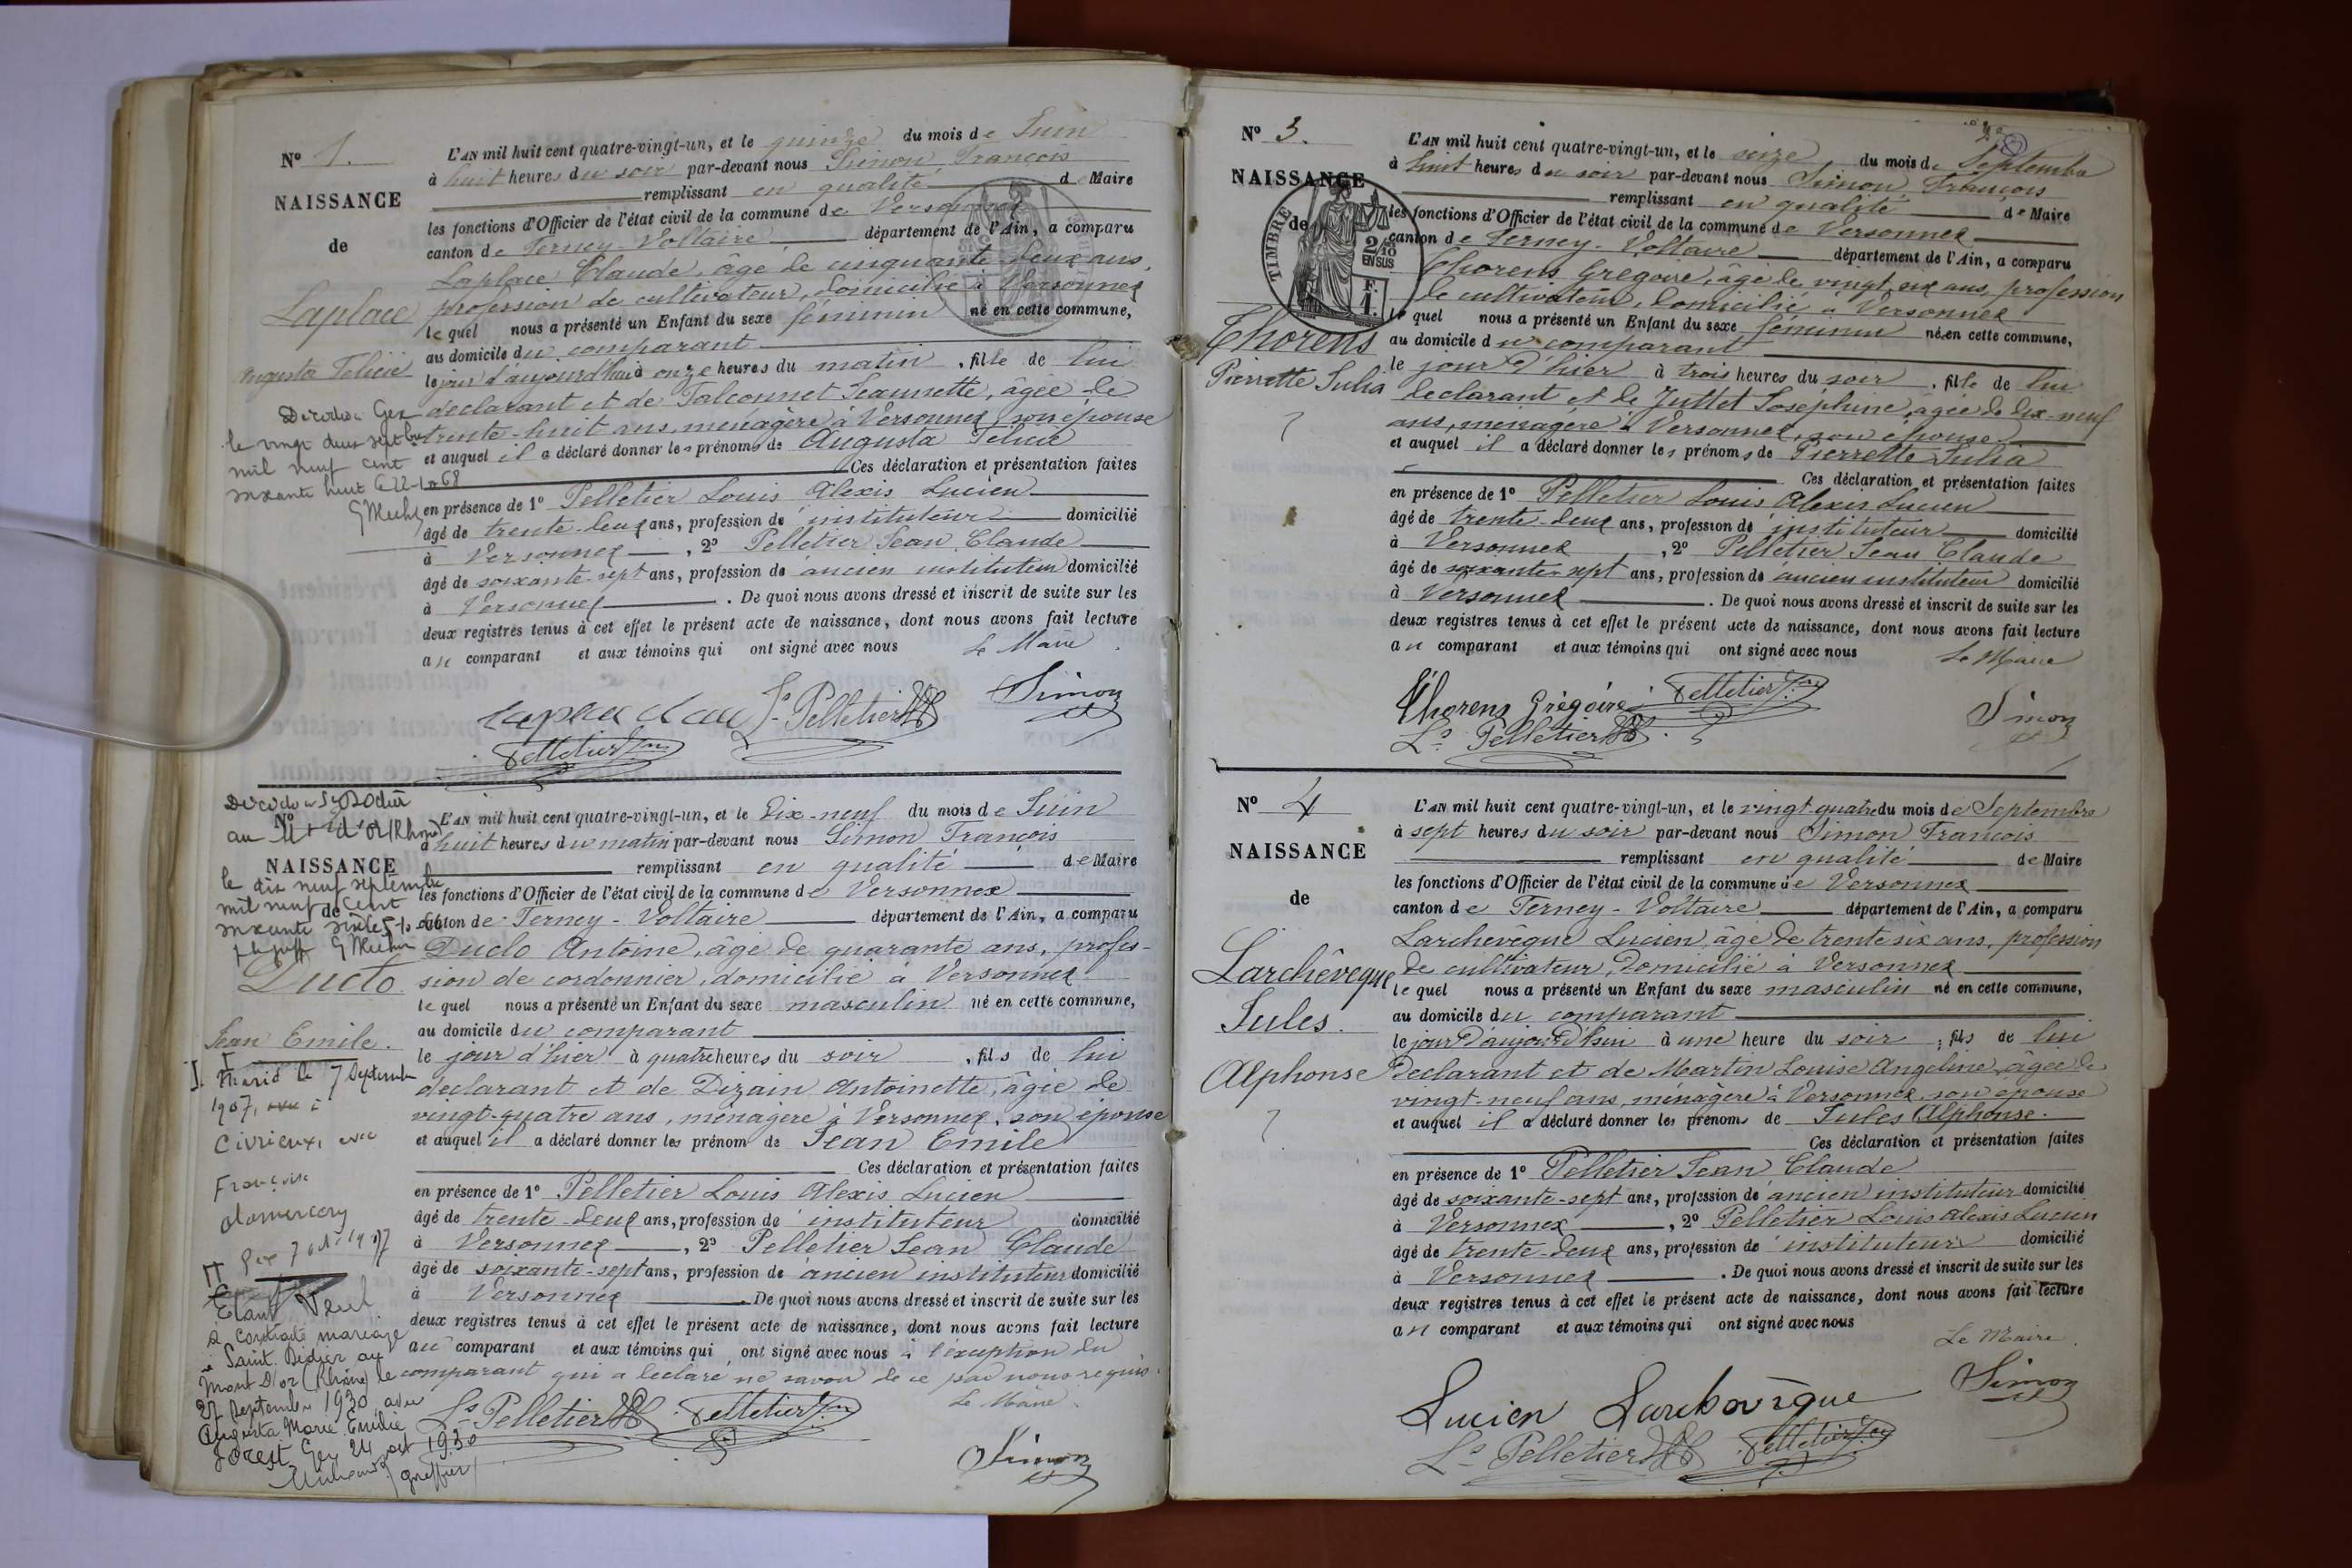 N° 1.
NAISSANCE
de
Laplace
Augusta Félicie
Décédée à Gex
le vingt deux septembre
mil neuf cent
soixante huit
L'AN mil huit cent quatre-vingt-un, et le quinze du mois de Juin
à huit heures du soir par-devant nous Simon François
remplissant en qualité de Maire
les fonctions d'Officier de l'état civil de la commune de Versonnex
canton de Ferney-Voltaire département de l'Ain, a comparu
Laplace Claude, âgé de cinquante-deux ans,
profession de cultivateur, domicilié à Versonnex
lequel nous a présenté un Enfant du sexe féminin né en cette commune,
au domicile du comparant
le jour d'aujourd'hui à onze heures du matin, fille de lui
déclarant et de Falconnet Jeannette, âgée de
trente-huit ans, ménagère à Versonnex, son épouse
et auquel il a déclaré donner les prénoms de Augusta Félicie
Ces déclaration et présentation faites
en présence de 1° Pelletier Louis Alexis Lucien
âgé de trente-deux ans, profession de instituteur domicilié
à Versonnex, 2° Pelletier Jean Claude
âgé de soixante-sept ans, profession de ancien instituteur domicilié
à Versonnex. De quoi nous avons dressé et inscrit de suite sur les
deux registres tenus à cet effet le présent acte de naissance, dont nous avons fait lecture
au comparant et aux témoins qui ont signé avec nous Le Maire
Ls Pelletier Simon
Pelletier Jean
Décédé à St Didier
au Mt d'Or (Rhône)
N°
NAISSANCE
le dix neuf septembre
mil neuf cent
de
soixante six le 5-10-66
Duclo
Jean Emile.
I. Marié le 7 Septembre
1907, à
Civrieux, avec
Françoise
Damercery
Gex 7 oct 1907
II
Etant Veuf
a contracté mariage
à Saint Didier au
Mont d'or (Rhône) le
27 Septembre 1930 avec
Augusta Marie Emélie
Forest. Gex 24 oct 1930
(greffier)
L'AN mil huit cent quatre-vingt-un, et le Dix-neuf du mois de Juin
à huit heures du matin par-devant nous Simon François
remplissant en qualité de Maire
les fonctions d'Officier de l'état civil de la commune de Versonnex
canton de Ferney-Voltaire département de l'Ain, a comparu
Duclo Antoine, âgé de quarante ans, profes-
sion de cordonnier, domicilié à Versonnex
lequel nous a présenté un Enfant du sexe masculin né en cette commune,
au domicile du comparant
le jour d'hier à quatre heures du soir, fils de lui
déclarant et de Dizain Antoinette, âgée de
vingt-quatre ans, ménagère à Versonnex, son épouse
et auquel il a déclaré donner les prénom de Jean Emile
Ces déclaration et présentation faites
en présence de 1° Pelletier Louis Alexis Lucien
âgé de trente-deux ans, profession de instituteur domicilié
à Versonnex, 2° Pelletier Jean Claude
âgé de soixante-sept ans, profession de ancien instituteur domicilié
à Versonnex. De quoi nous avons dressé et inscrit de suite sur les
deux registres tenus à cet effet le présent acte de naissance, dont nous avons fait lecture
au comparant et aux témoins qui ont signé avec nous à l'exception du
comparant qui a déclaré ne savoir de ce par nous requis.
Le Maire
Ls Pelletier Pelletier Jean
Simon
N° 3.
NAISSANCE
de
TIMBRE
2/10
EN SUS
F.
1.
Thorens
Pierrette Julia
?
L'AN mil huit cent quatre-vingt-un, et le seize du mois de Septembre
à huit heures du soir par-devant nous Simon François
remplissant en qualité de Maire
les fonctions d'Officier de l'état civil de la commune de Versonnex
canton de Ferney-Voltaire département de l'Ain, a comparu
Thorens Grégoire, âgé de vingt-six ans, profession
de cultivateur, domicilié à Versonnex
lequel nous a présenté un Enfant du sexe féminin né en cette commune,
au domicile du comparant
le jour d'hier à trois heures du soir, fille de lui
déclarant et de Juttet Joséphine, âgée de dix-neuf
ans, ménagère à Versonnex, son épouse
et auquel il a déclaré donner les prénoms de Pierrette Julia
Ces déclaration et présentation faites
en présence de 1° Pelletier Louis Alexis Lucien
âgé de trente-deux ans, profession de instituteur domicilié
à Versonnex, 2° Pelletier Jean Claude
âgé de soixante-sept ans, profession de ancien instituteur domicilié
à Versonnex. De quoi nous avons dressé et inscrit de suite sur les
deux registres tenus à cet effet le présent acte de naissance, dont nous avons fait lecture
au comparant et aux témoins qui ont signé avec nous Le Maire
Thorens Grégoire Pelletier Jean
Ls Pelletier Simon
N° 4
NAISSANCE
de
Larchêveque
Jules.
Alphonse
?
L'AN mil huit cent quatre-vingt-un, et le vingt-quatre du mois de Septembre
à sept heures du soir par-devant nous Simon François
remplissant en qualité de Maire
les fonctions d'Officier de l'état civil de la commune de Versonnex
canton de Ferney-Voltaire département de l'Ain, a comparu
Larchevêque Lucien, âgé de trente six ans, profession
de cultivateur, domicilié à Versonnex
lequel nous a présenté un Enfant du sexe masculin né en cette commune,
au domicile du comparant
le jour d'aujourd'hui à une heure du soir, fils de lui
déclarant et de Martin Louise Angeline, âgée de
vingt-neuf ans, ménagère à Versonnex, son épouse
et auquel il a déclaré donner les prénoms de Jules Alphonse.
Ces déclaration et présentation faites
en présence de 1° Pelletier Jean Claude
âgé de soixante-sept ans, profession de ancien instituteur domicilié
à Versonnex, 2° Pelletier Louis Alexis Lucien
âgé de trente-deux ans, profession de instituteur domicilié
à Versonnex. De quoi nous avons dressé et inscrit de suite sur les
deux registres tenus à cet effet le présent acte de naissance, dont nous avons fait lecture
au comparant et aux témoins qui ont signé avec nous
Le Maire.
Lucien Simon
Ls Pelletier Pelletier Jean